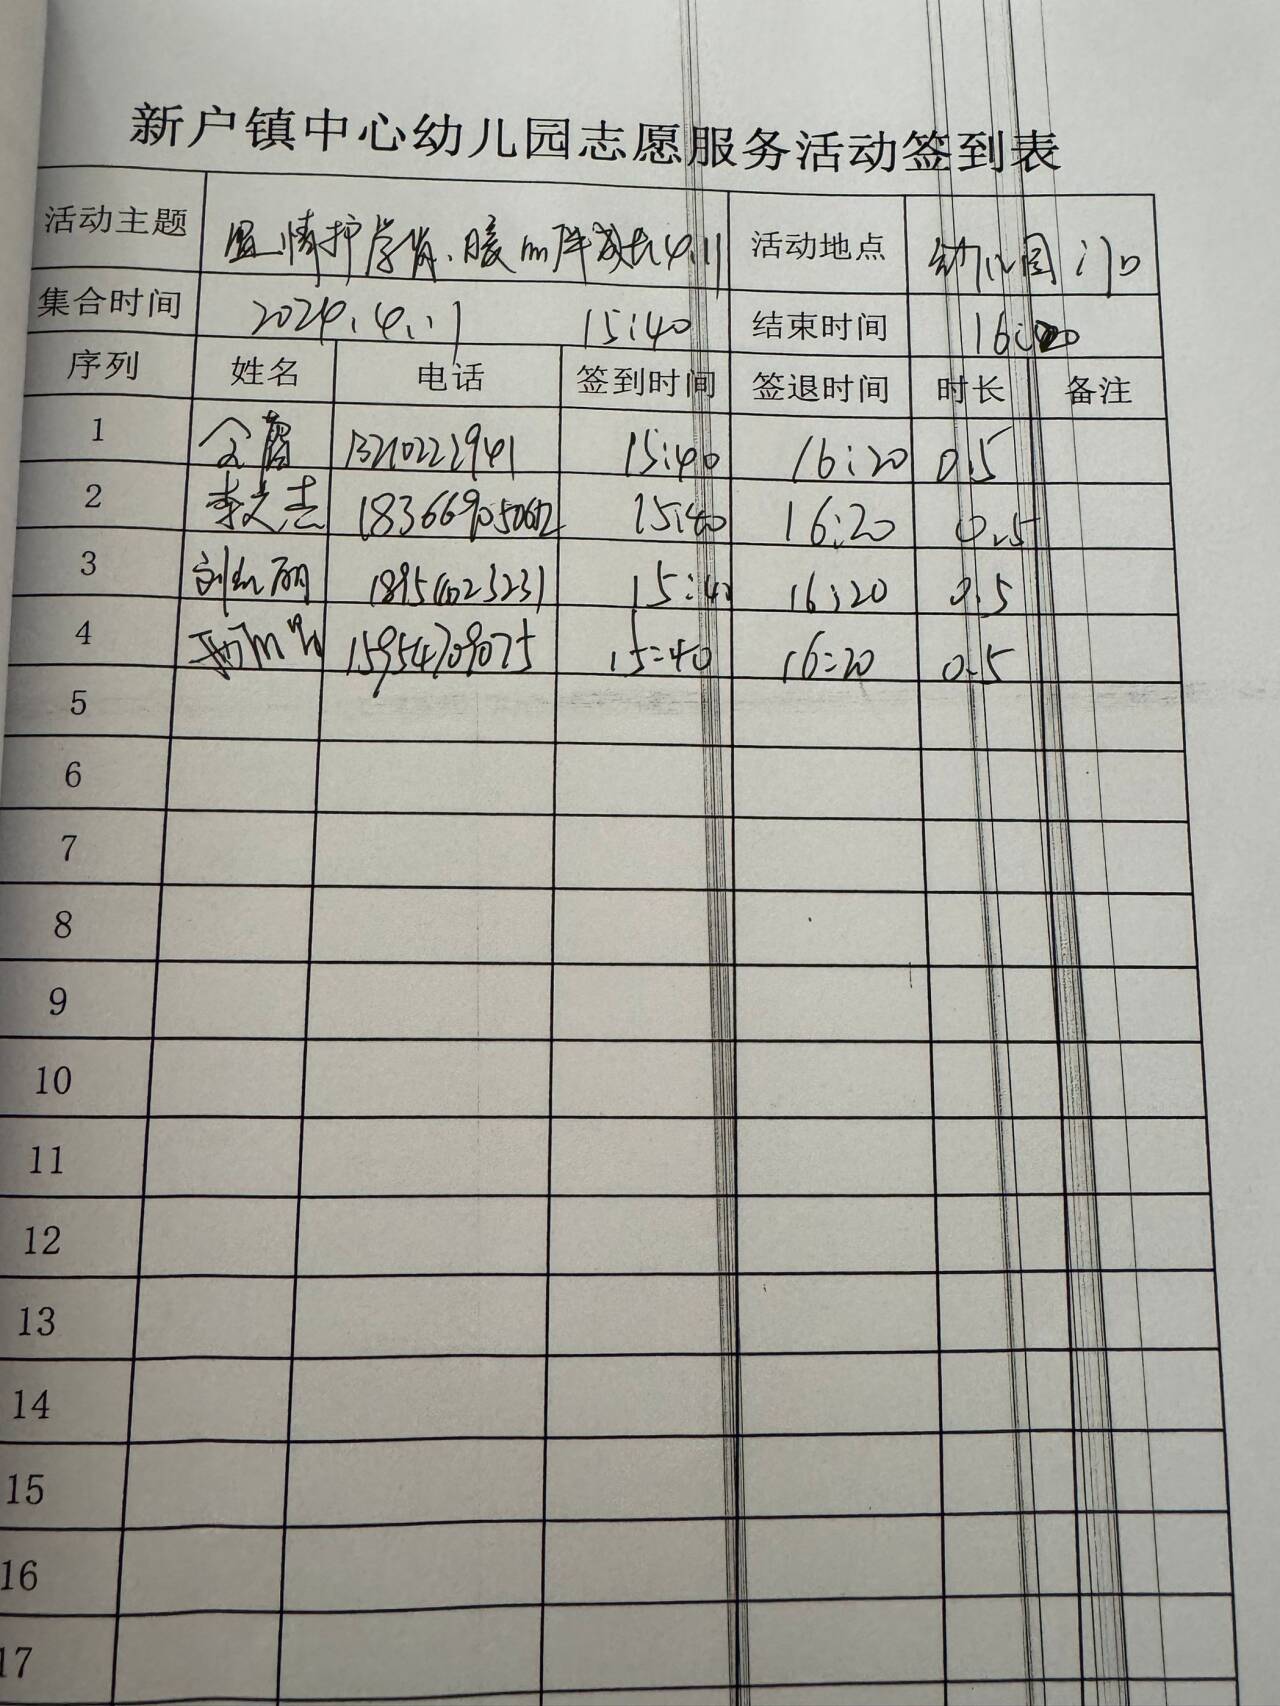 新户镇中心幼儿园志愿服务活动签到表
活动主题 温情护学岗、暖心伴成长4.11 活动地点 幼儿园门口
集合时间 2024.4.11 15:40 结束时间 16:20
序列 姓名 电话 签到时间 签退时间 时长 备注
1 15:40 16:20 0.5
2 李文志 15:40 16:20 0.5
3 15:40 16:20 0.5
4 15954709075 15:40 16:20 0.5
5
6
7
8
9
10
11
12
13
14
15
16
17